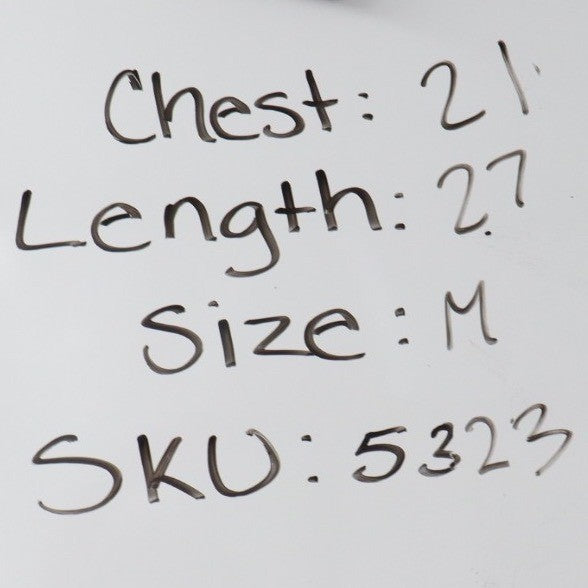 Chest: 21
Length: 27
Size: M
SKU: 5323